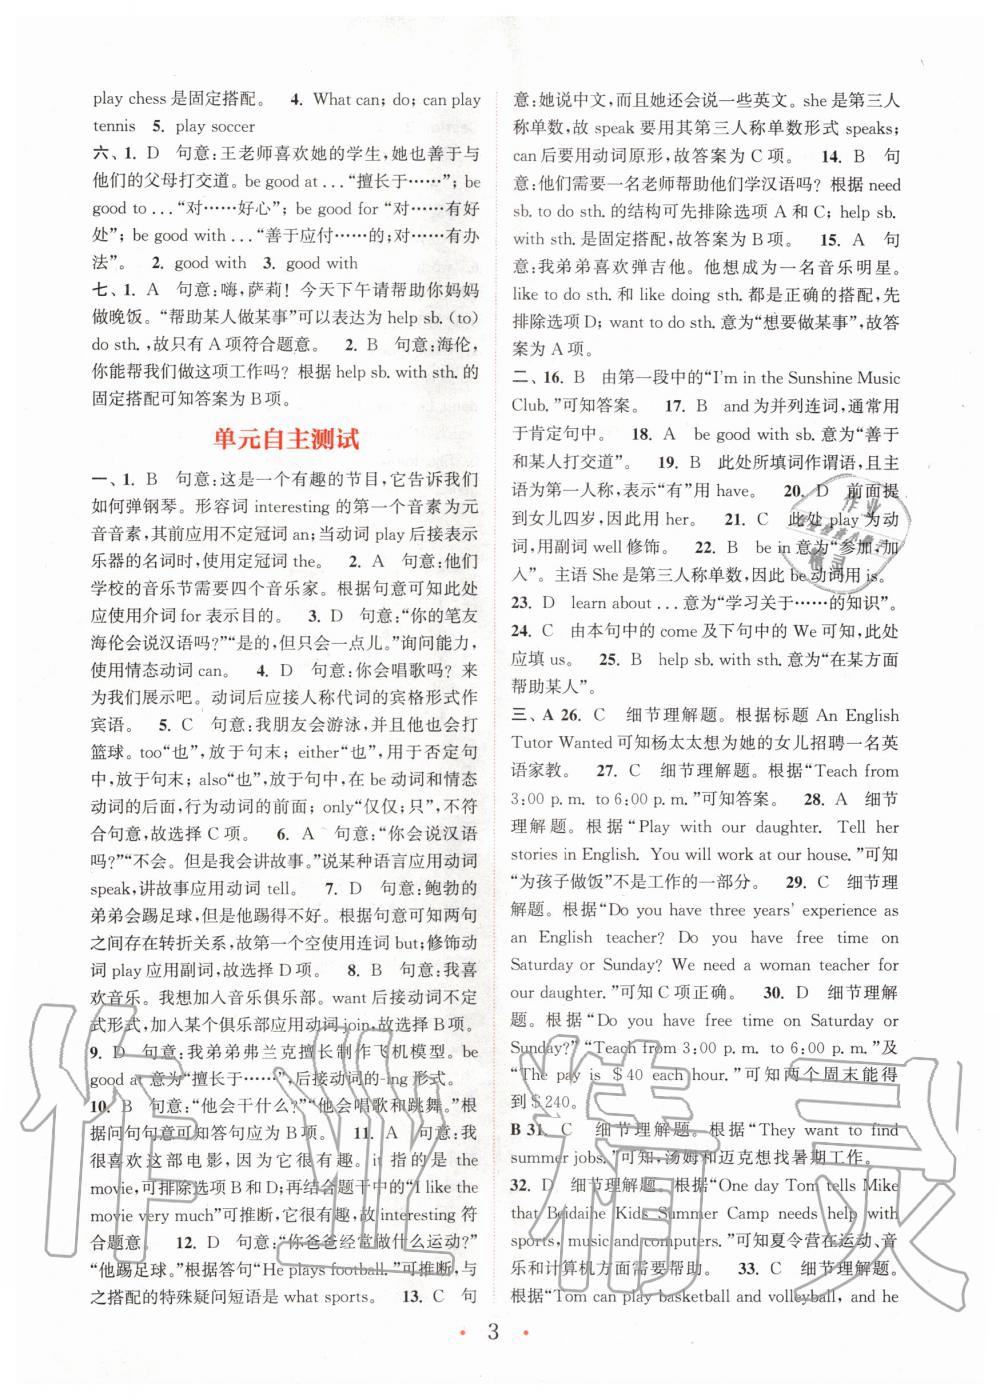 play chess 是固定搭配。 4. What can; do; can play
tennis 5. play soccer
六、1. D 句意:王老师喜欢她的学生,她也善于与
他们的父母打交道。be good at ...“擅长于……”; be
good to ...“对……好心”; be good for “对……有好
处”; be good with ...“善于应付……的;对……有办
法”。 2. good with 3. good with
七、1. A 句意:嗨,萨莉! 今天下午请帮助你妈妈
做晚饭。“帮助某人做某事”可以表达为 help sb. (to)
do sth. ,故只有 A 项符合题意。 2. B 句意:海伦,
你能帮我们做这项工作吗? 根据 help sb. with sth. 的
固定搭配可知答案为 B 项。
单元自主测试
一、1. B 句意:这是一个有趣的节目,它告诉我们
如何弹钢琴。形容词 interesting 的第一个音素为元
音音素,其前应用不定冠词 an;当动词 play 后接表示
乐器的名词时,使用定冠词 the。 2. A 句意:他们
学校的音乐节需要四个音乐家。根据句意可知此处
应使用介词 for 表示目的。 3. D 句意:“你的笔友
海伦会说汉语吗?”“是的,但只会一点儿。”询问能力,
使用情态动词 can。 4. D 句意:你会唱歌吗? 来
为我们展示吧。动词后应接人称代词的宾格形式作
宾语。 5. C 句意:我朋友会游泳,并且他也会打
篮球。too“也”,放于句末; either“也”,用于否定句
中,放于句末; also“也”,放于句中,在 be 动词和情态
动词的后面,行为动词的前面; only“仅仅;只”,不符
合句意,故选择 C 项。 6. A 句意:“你会说汉语
吗?”“不会。但是我会讲故事。”说某种语言应用动词
speak,讲故事应用动词 tell。 7. D 句意:鲍勃的
弟弟会踢足球,但是他踢得不好。根据句意可知两句
之间存在转折关系,故第一个空使用连词 but;修饰动
词 play 应用副词,故选择 D 项。 8. B 句意:我喜
欢音乐。我想加入音乐俱乐部。want 后接动词不定
式形式,加入某个俱乐部应用动词 join,故选择 B 项。
9. D 句意:我弟弟弗兰克擅长制作飞机模型。be
good at 意为“擅长于……”,后接动词的-ing 形式。
10. B 句意:“他会干什么?”“他会唱歌和跳舞。”根
据问句句意可知答句应为 B 项。 11. A 句意:我
很喜欢这部电影,因为它很有趣。it 指的是 the
movie,可排除选项 B 和 D;再结合题干中的“I like the
movie very much”可推断,它很有趣,故 interesting 符
合题意。 12. D 句意:“你爸爸经常做什么运动?”
“他踢足球。”根据答句“He plays football. ”可推断,与
之搭配的特殊疑问短语是 what sports。 13. C 句
意:她说中文,而且她还会说一些英文。she 是第三人
称单数,故 speak 要用其第三人称单数形式 speaks;
can 后要用动词原形,故答案为 C 项。 14. B 句
意:他们需要一名老师帮助他们学汉语吗? 根据 need
sb. to do sth. 的结构可先排除选项 A 和 C; help sb.
with sth. 是固定搭配,故答案为 B 项。 15. A 句
意:我弟弟喜欢弹吉他。他想成为一名音乐明星。
like to do sth. 和 like doing sth. 都是正确的搭配,先
排除选项 D; want to do sth. 意为“想要做某事”,故答
案为 A 项。
二、16. B 由第一段中的“I'm in the Sunshine Music
Club. ”可知答案。 17. B and 为并列连词,通常用
于肯定句中。 18. A be good with sb. 意为“善于
和某人打交道”。 19. B 此处所填词作谓语,且主
语为第一人称,表示“有”用 have。 20. D 前面提
到女儿四岁,故用 her。 21. C 此处 play 为动
词,用副词 well 修饰。 22. B be in 意为“参加,加
入”。主语 She 是第三人称单数,因此 be 动词用 is。
23. D learn about ... 意为“学习关于……的知识”。
24. C 由本句中的 come 及下句中的 We 可知,此处
应填 us。 25. B help sb. with sth. 意为“在某方面
帮助某人”。
三、A 26. C 细节理解题。根据标题 An English
Tutor Wanted 可知杨太太想为她的女儿招聘一名英
语家教。 27. C 细节理解题。根据“Teach from
3:00 p. m. to 6:00 p. m. ”可知答案。 28. A 细节
理解题。根据“Play with our daughter. Tell her
stories in English. You will work at our house. ”可知
“为孩子做饭”不是工作的一部分。 29. C 细节理
解题。根据“Do you have three years' experience as
an English teacher? Do you have free time on
Saturday or Sunday? We need a woman teacher for
our daughter. ”可知 C 项正确。 30. D 细节理解
题。根据“Do you have free time on Saturday or
Sunday?”“Teach from 3:00 p. m. to 6:00 p. m. ”及
“The pay is $40 each hour. ”可知两个周末能得
到 $240。
B 31. C 细节理解题。根据“They want to find
summer jobs. ”可知,汤姆和迈克想找暑期工作。
32. D 细节理解题。根据“One day Tom tells Mike
that Beidaihe Kids Summer Camp needs help with
sports, music and computers. ”可知夏令营在运动、音
乐和计算机方面需要帮助。 33. C 细节理解题。
根据“Tom can play basketball and volleyball, and he
· 3 ·
作业精灵
作业
精灵